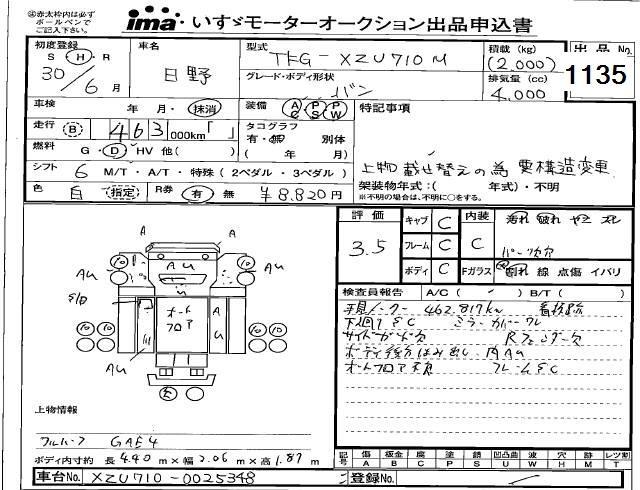 ※赤太枠内は必ず
ボールペンで
ご記入下さい。
ima いすゞモーターオークション出品申込書
初度登録 車名 型式 TKG-XZU710M 積載(kg) 出品No.
S・H・R 日野 グレード・ボディ形状 (2,000) 1135
30 / 6月 バン 排気量(cc)
4,000
車検 年 月・抹消 装備 AC PS PW 特記事項
走行 B 463 000km「 」 タコグラフ
有・無 別体
燃料 G・D・HV 他( ) ( 年 月)
シフト 6 M/T・A/T・特殊(2ペダル・3ペダル) 上物載せ替えの為 要構造変更
架装物年式:( 年式)・不明
※不明の場合は、不明に○をする。
色 白 (指定) R券 有 無 ¥8,820円
評価 キャブ C 内装 汚れ 破れ ヤニ スレ
3.5 フレーム C C パーツ欠
ボディ C Fガラス 割れ 線 点傷 イバリ
検査員報告 A/C( ) B/T( )
462.817km
下廻りSC
オートフロア不良 フレームSC
A A
AU AU
オートフロア
AU
上物情報
フルハーフ GAE4
ボディ内寸約 長4.40m×幅2.06m×高1.87m
記号 傷A 板金B 腐C 塗P 錆S 凹凸曲U 波W 穴H 跡M レツ割T
車台No. XZU710-0025348 登録No.